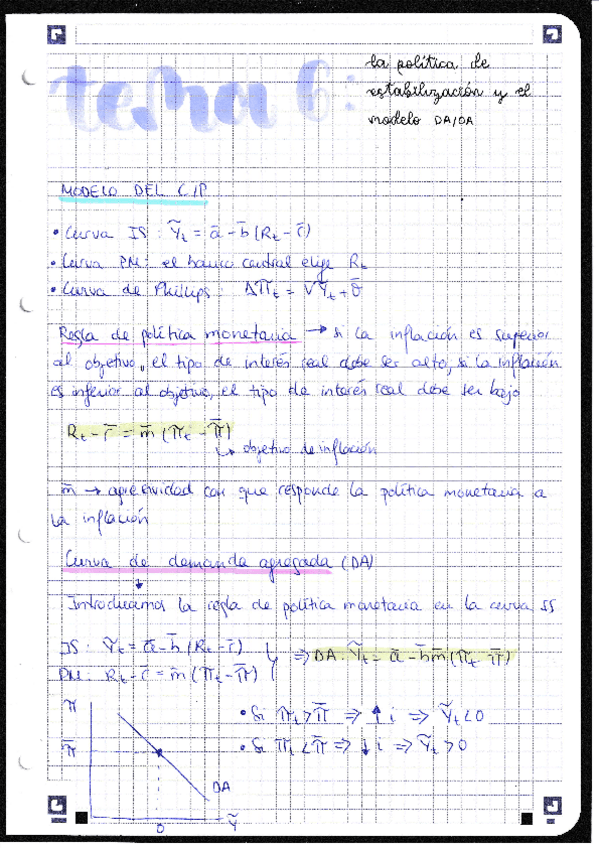 tema 6:
la política de
estabilización y el
modelo DA/OA
MODELO DEL C/P
• Curva IS: Ỹt = ā - b̄ (Rt - r̄)
• Curva PM: el banco central elige Rt
• Curva de Phillips: Δπt = v̄Ỹt + ō
Regla de política monetaria → si la inflación es superior
al objetivo, el tipo de interés real debe ser alto, si la inflación
es inferior al objetivo, el tipo de interés real debe ser bajo
Rt - r̄ = m̄ (πt - π̄)
↳ objetivo de inflación
m̄ → agresividad con que responde la política monetaria a
la inflación
Curva de demanda agregada (DA)
↓
Introducimos la regla de política monetaria en la curva IS
IS: Ỹt = ā - b̄ (Rt - r̄)
PM: Rt - r̄ = m̄ (πt - π̄)
⇒ DA: Ỹt = ā - b̄m̄ (πt - π̄)
• Si πt > π̄ ⇒ ↑ i ⇒ Ỹt < 0
• Si πt < π̄ ⇒ ↓ i ⇒ Ỹt > 0
π
π̄
DA
0
Ỹ